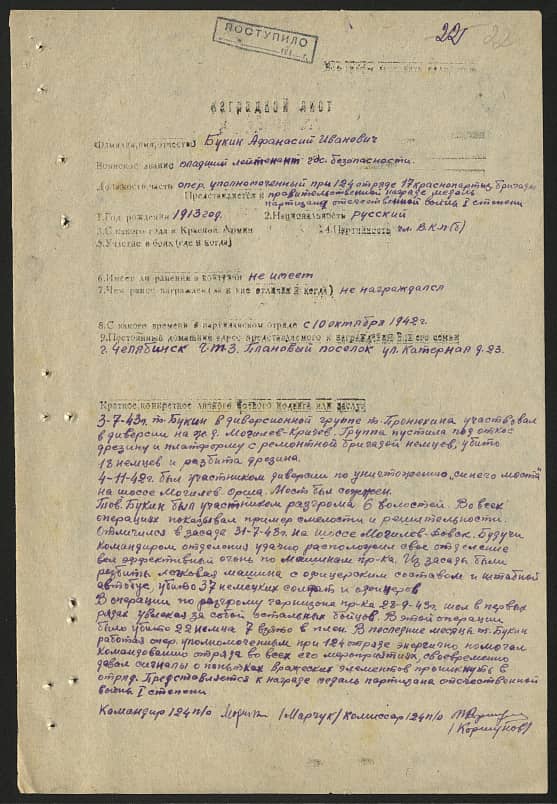 ПОСТУПИЛО
22 22
НАГРАДНОЙ ЛИСТ
Фамилия, имя, отчество Букин Афанасий Иванович
Воинское звание младший лейтенант гос. безопасности.
Должность часть опер. уполномоченный при 124 отряде 17 краснопартиз. бригады
Представляется к правительственной награде медаль
партизана отечественной войны I степени
1. Год рождения 1913 год. 2. Национальность русский
3. С какого года в Красной Армии 4. Партийность чл. ВКП(б)
5. Участие в боях (где и когда)
6. Имеет ли ранения и контузии не имеет
7. Чем ранее награжден (за какие отличия и когда) не награждался
8. С какого времени в партизанском отряде с 10 октября 1942 г.
9. Постоянный домашний адрес представляемого к награждению и его семьи
г. Челябинск ЧТЗ. Плановый поселок ул. Катерная д. 23.
Краткое конкретное личного боевого подвига или заслуг
3-7-43 г. т. Букин в диверсионной группе т. Пронюхина участвовал
в диверсии на ж.д. Могилев-Кричев. Группа пустила под откос
дрезину и платформу с ремонтной бригадой немцев, убито
18 немцев и разбита дрезина.
4-11-42 г. был участником диверсии по уничтожению „синего моста“
на шоссе Могилев-Орша. Мост был сожжен.
Тов. Букин был участником разгрома 6 волостей. Во всех
операциях показывал пример смелости и решительности.
Отличился в засаде 31-7-43 г. на шоссе Могилев-Довск. Будучи
командиром отделения удачно расположил свое отделение
вел эффективный огонь по машинам пр-ка. Из засады были
разбиты легковая машина с офицерским составом и штабной
автобус, убито 37 немецких солдат и офицеров
В операции по разгрому гарнизона пр-ка 28-9-43 г. шел в первых
рядах увлекая за собой остальных бойцов. В этой операции
было убито 22 немца 7 взято в плен. В последние месяцы т. Букин
работая опер. уполномоченным при 124 отряде энергично помогал
командованию отряда во всех его мероприятиях своевременно
давал сигналы о попытках вражеских элементов проникнуть в
отряд. Представляется к награде медаль партизана отечественной
войны I степени
Командир 124 п/о /Марчук/ Комиссар 124 п/о
/Коршунов/